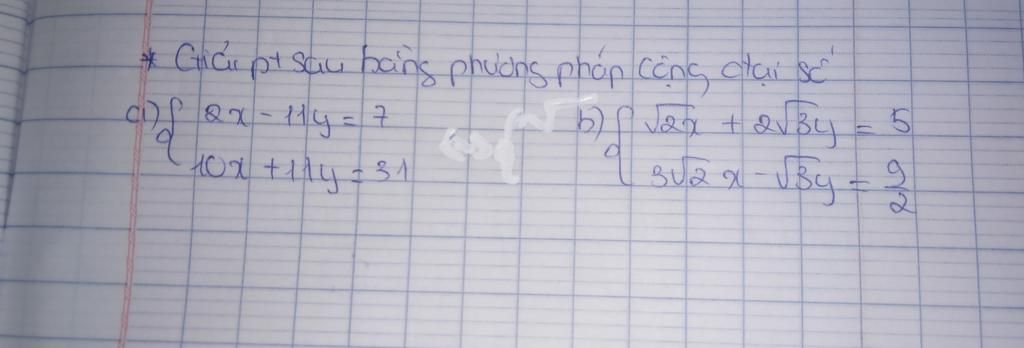 * Giải pt sau bằng phương pháp cộng đại số
a) { 2x - 11y = 7
10x + 11y = 31
b) { √2x + 2√3y = 5
3√2x - √3y = 9/2